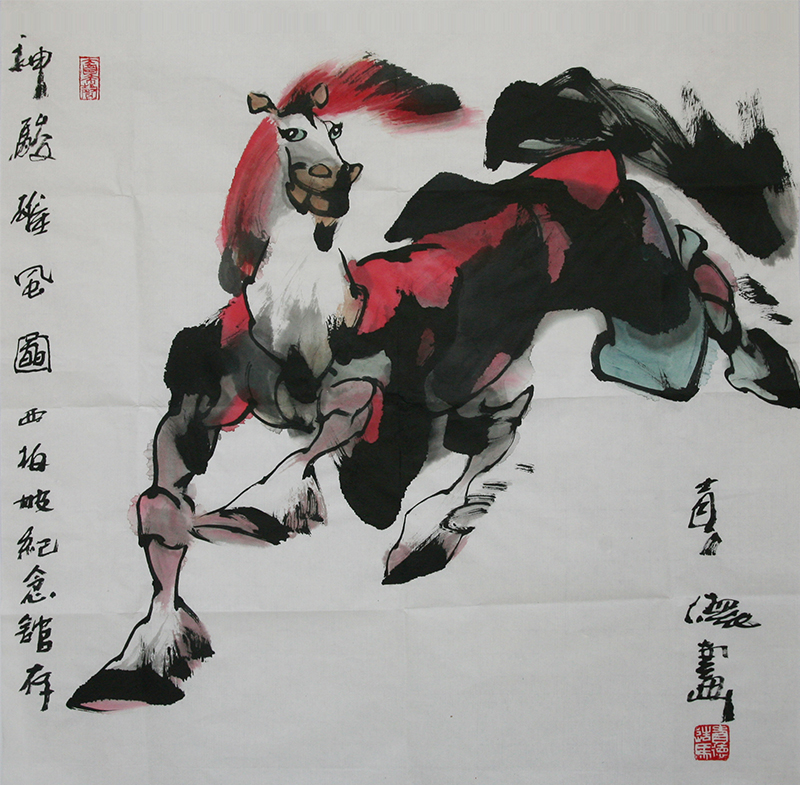 神駿雄風圖
西柏坡紀念館存
青德畫